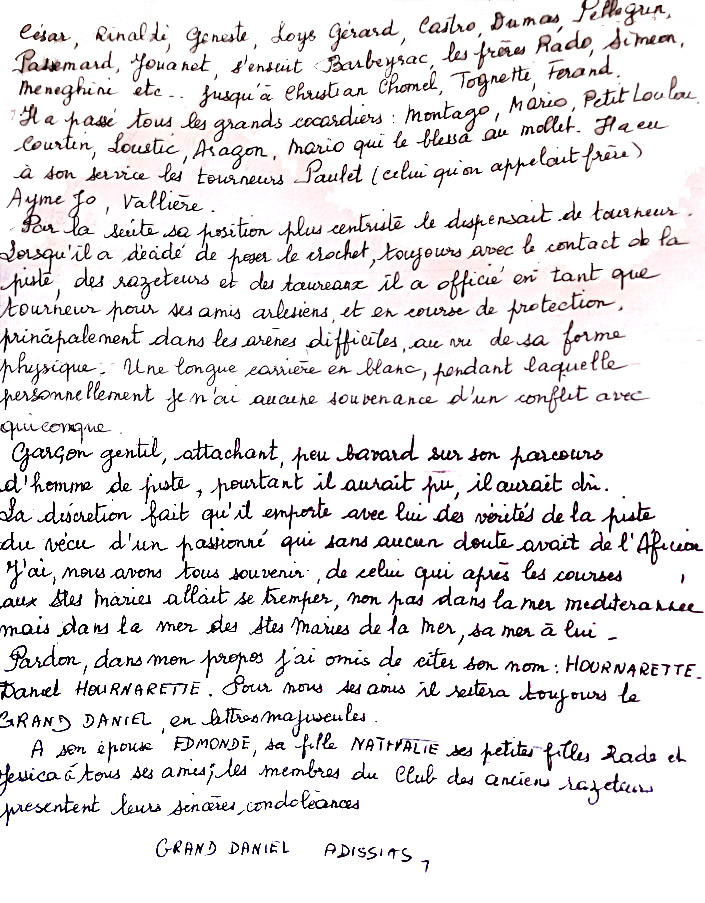 César, Rinaldi, Geneste, Loys Gérard, Castro, Dumas, Pellegrin,
Passemard, Youanet, s'ensuit Barbeyrac, les frères Rado, Siméon,
Meneghini etc... jusqu'à Christian Chomel, Tognetti, Ferand.
Il a passé tous les grands cocardiers : Montago, Mario, Petit Loulou
Courtin, Loustic, Aragon, Mario qui le blessa au mollet. Il a eu
à son service les tourneurs Paulet (celui qu'on appelait frère)
Ayme Jo, Vallière.
Par la suite sa position plus centriste le dispensait de tourneur.
Lorsqu'il a décidé de poser le crochet, toujours avec le contact de la
piste, des razeteurs et des taureaux il a officié en tant que
tourneur pour ses amis arlesiens, et en course de protection,
principalement dans les arènes difficiles, au vu de sa forme
physique. Une longue carrière en blanc, pendant laquelle
personnellement je n'ai aucune souvenance d'un conflit avec
quiconque.
Garçon gentil, attachant, peu bavard sur son parcours
d'homme de piste, pourtant il aurait pu, il aurait dû.
Sa discretion fait qu'il emporte avec lui des vérités de la piste
du vécu d'un passionné qui sans aucun doute avait de l'Aficion
J'ai, nous avons tous souvenir, de celui qui après les courses
aux Stes Maries allait se tremper, non pas dans la mer mediterannee
mais dans la mer des Stes Maries de la Mer, sa mer à lui -
Pardon, dans mon propos j'ai omis de citer son nom : HOURNARETTE.
Daniel HOURNARETTE. Pour nous ses amis il restera toujours le
GRAND DANIEL, en lettres majuscules.
A son épouse EDMONDE, sa fille NATHALIE ses petites filles Rade et
Jessica à tous ses amis, les membres du Club des anciens razeteurs
presentent leurs sincères, condoléances
GRAND DANIEL ADISSIAS,